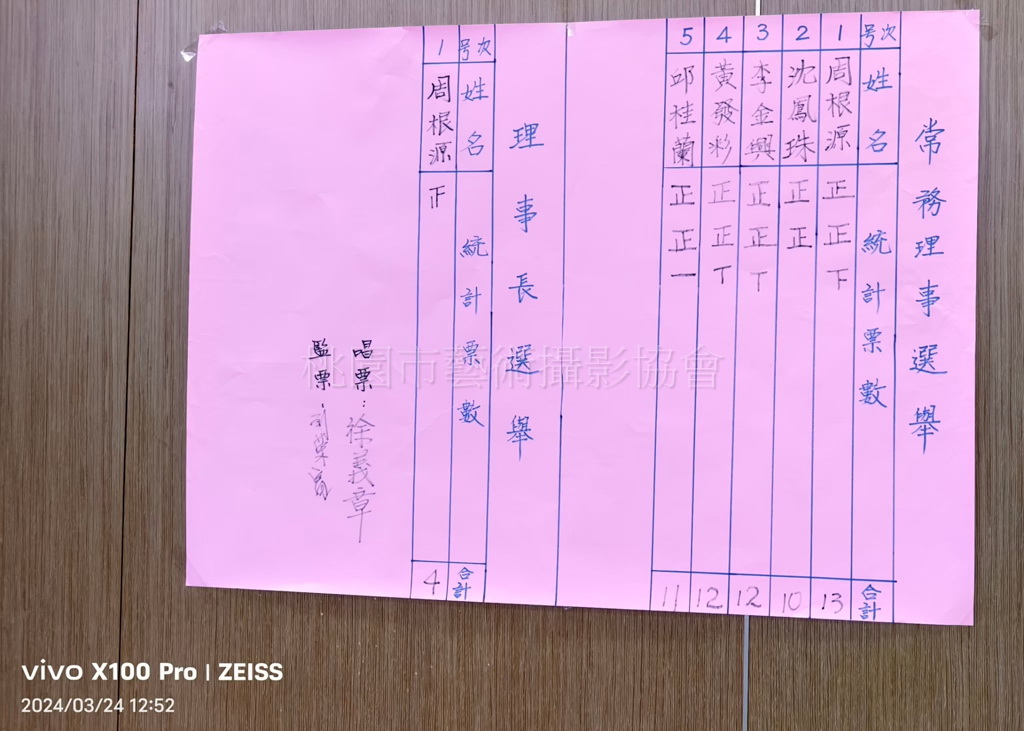 常務理事選舉
号次 姓名 統計票數 合計
1 周根源 正正下 13
2 沈鳳珠 正正 10
3 李金興 正正丅 12
4 黃發彩 正正丅 12
5 邱桂蘭 正正一 11
理事長選舉
号次 姓名 統計票數 合計
1 周根源 正 4
唱票：徐義章
監票：
桃園市藝術攝影協會
vivo X100 Pro | ZEISS
2024/03/24 12:52